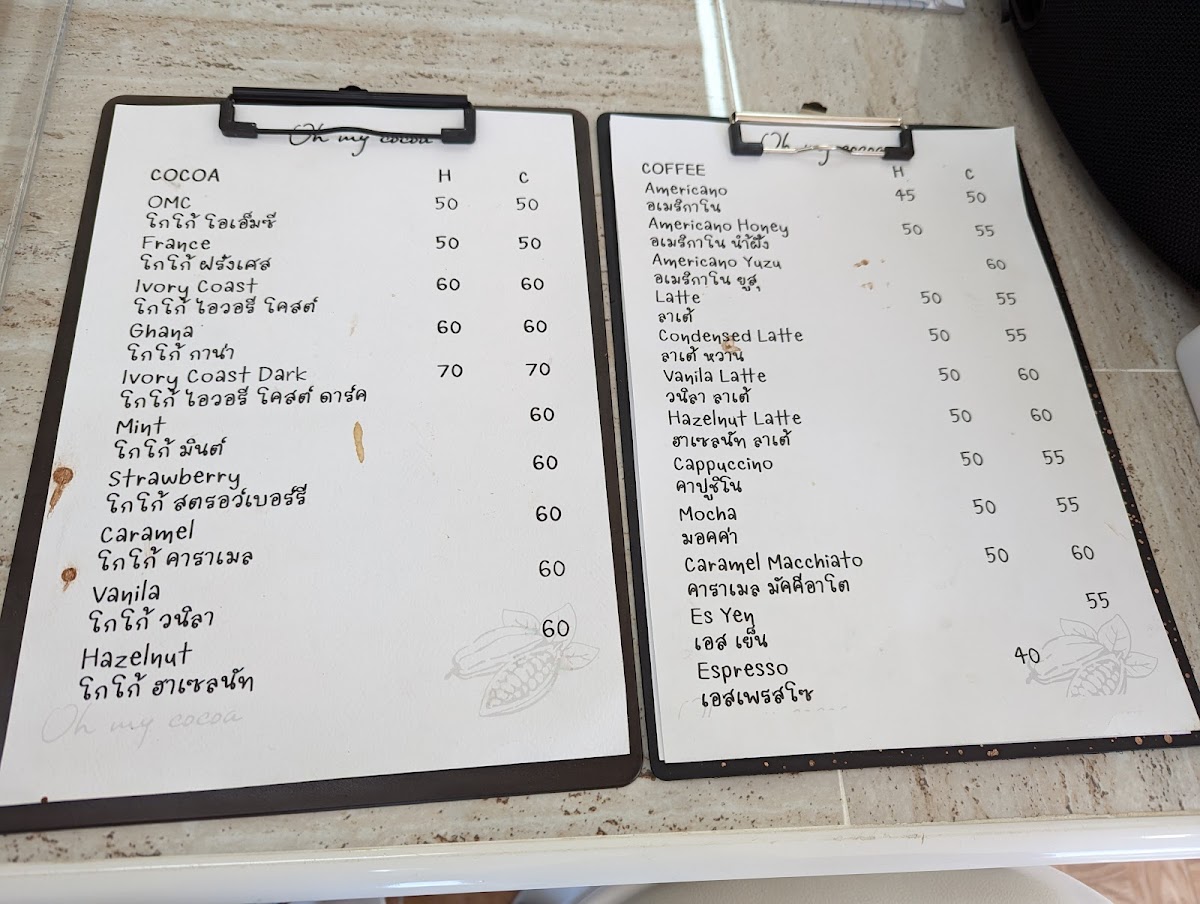 Oh my cocoa
COCOA H C
OMC 50 50
โกโก้ โอเอ็มซี
France 50 50
โกโก้ ฝรั่งเศส
Ivory Coast 60 60
โกโก้ ไอวอรี โคสต์
Ghana 60 60
โกโก้ กาน่า
Ivory Coast Dark 70 70
โกโก้ ไอวอรี โคสต์ ดาร์ค
Mint 60
โกโก้ มินต์
Strawberry 60
โกโก้ สตรอว์เบอร์รี
Caramel 60
โกโก้ คาราเมล
Vanila 60
โกโก้ วนิลา
Hazelnut 60
โกโก้ ฮาเซลนัท
Oh my cocoa
Oh my cocoa
COFFEE H C
Americano 45 50
อเมริกาโน
Americano Honey 50 55
อเมริกาโน น้ำผึ้ง
Americano Yuzu 60
อเมริกาโน ยูสุ
Latte 50 55
ลาเต้
Condensed Latte 50 55
ลาเต้ หวาน
Vanila Latte 50 60
วนิลา ลาเต้
Hazelnut Latte 50 60
ฮาเซลนัท ลาเต้
Cappuccino 50 55
คาปูชิโน
Mocha 50 55
มอคค่า
Caramel Macchiato 50 60
คาราเมล มัคคีอาโต
Es Yen 55
เอส เย็น
Espresso 40
เอสเพรสโซ